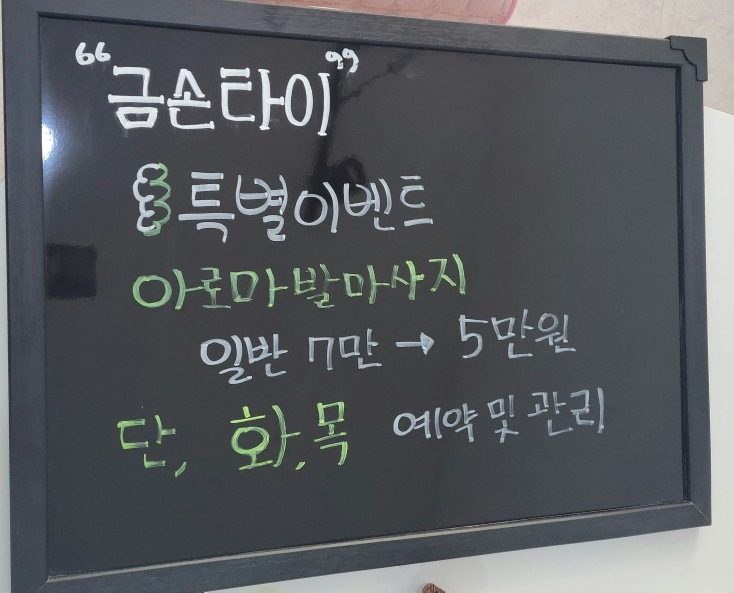 "금손타이"
특별이벤트
아로마발마사지
일반 7만 → 5만원
단, 화, 목 예약 및 관리